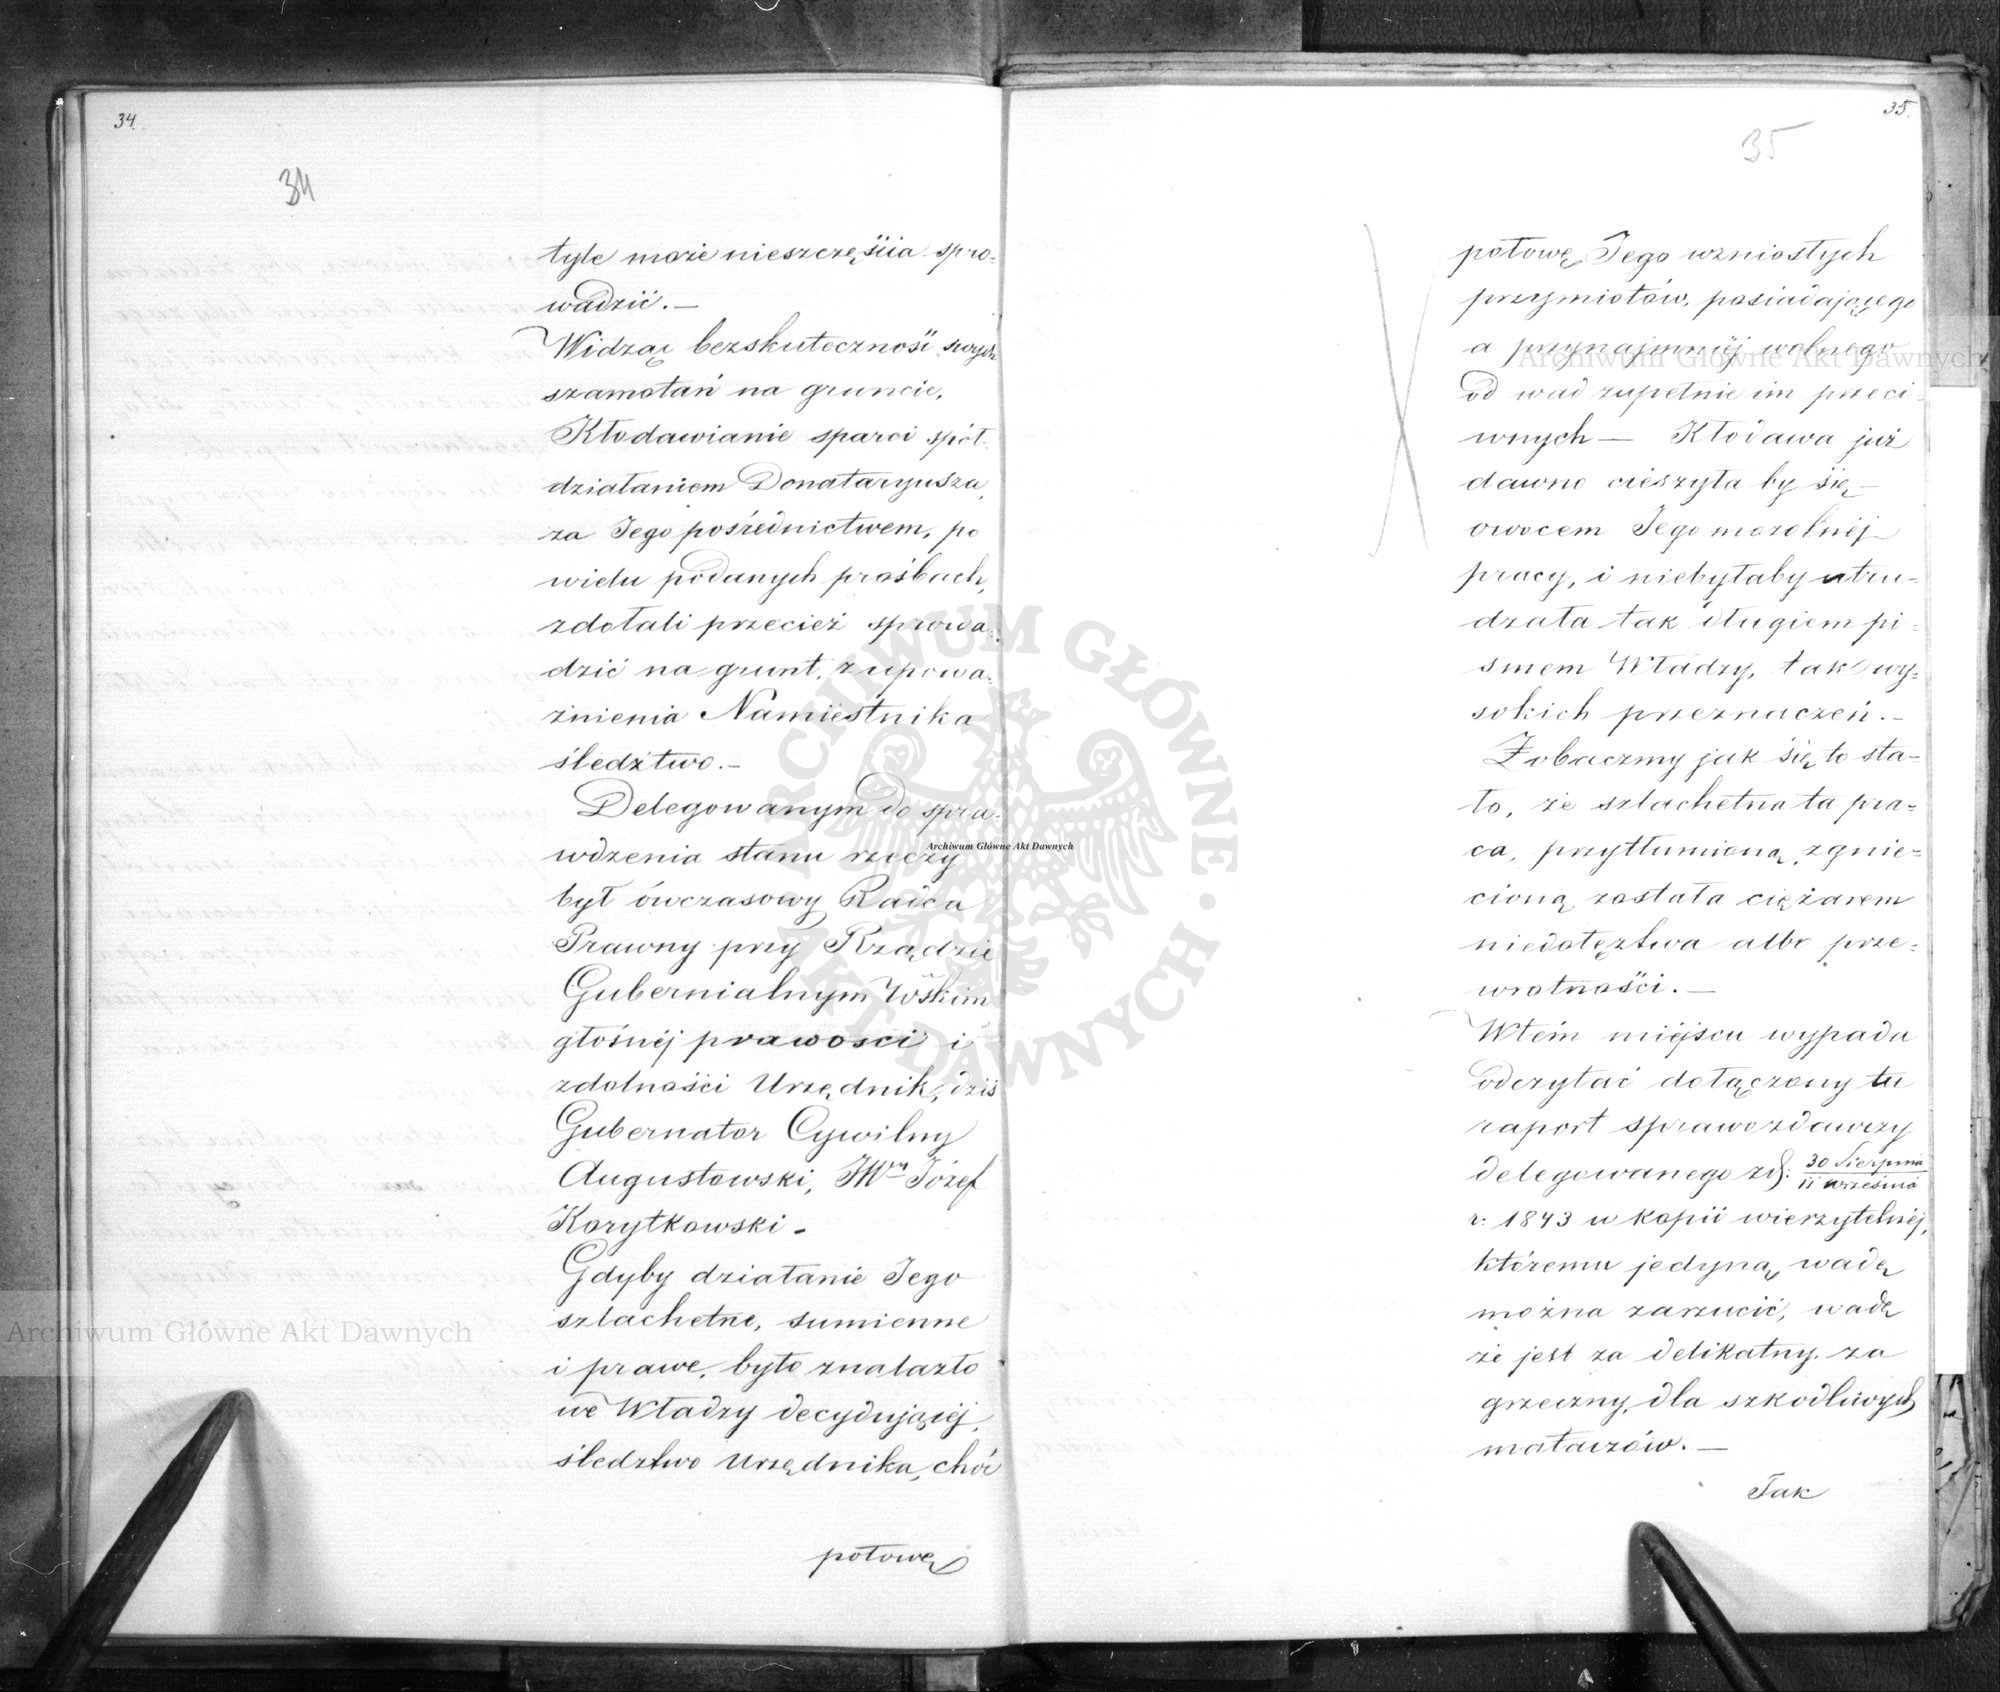 34.
34
tyle może nieszczęścia spro-
wadzić.—
Widząc bezskuteczność swych
szamotań na gruncie,
Kłodawianie sparci spół-
działaniem Donataryusza,
za Jego pośrednictwem, po
wielu podanych prośbach,
zdołali przecież sprowa-
dzić na grunt, z upowa-
żnienia Namiestnika
śledztwo.—
Delegowanym do spra-
wdzenia stanu rzeczy
był ówczasowy Radca
Prawny przy Rządzie
Gubernialnym Wskim
głośnéj prawości i
zdolności Urzędnik, dziś
Gubernator Cywilny
Augustowski, JWny Józef
Korytkowski -
Gdyby działanie Jego
szlachetne, sumienne
i prawe, było znalazło
we Władzy decydującéj,
śledztwo Urzędnika, choć
połowę
35.
35
połowę Jego wzniosłych
przymiotów, posiadającego
a przynajmniéj wolnego
od wad zupełnie im przeci-
wnych — Kłodawa już
dawno cieszyła by się
owocem Jego mozolnéj
pracy, i niebyłaby utru-
dzała tak długiem pi-
smem Władzy, tak wy-
sokich przeznaczeń.—
Zobaczmy jak się to sta-
ło, że szlachetna ta pra-
ca, przytłumioną, zgnie-
cioną została ciężarem
niedołęztwa albo prze-
wrotności.—
Wtém miéjscu wypada
odczytać dołączony tu
raport sprawozdawczy
delegowanego zd: 30 Sierpnia / 11 września
r: 1843 w kopii wierzytelnéj,
któremu jedyną wadę
można zarzucić, wadę
że jest za delikatny, za
grzeczny, dla szkodliwych
mataczów.—
Tak
Archiwum Główne Akt Dawnych
Archiwum Główne Akt Dawnych
Archiwum Główne Akt Dawnych
ARCHIWUM GŁÓWNE · AKT DAWNYCH ·